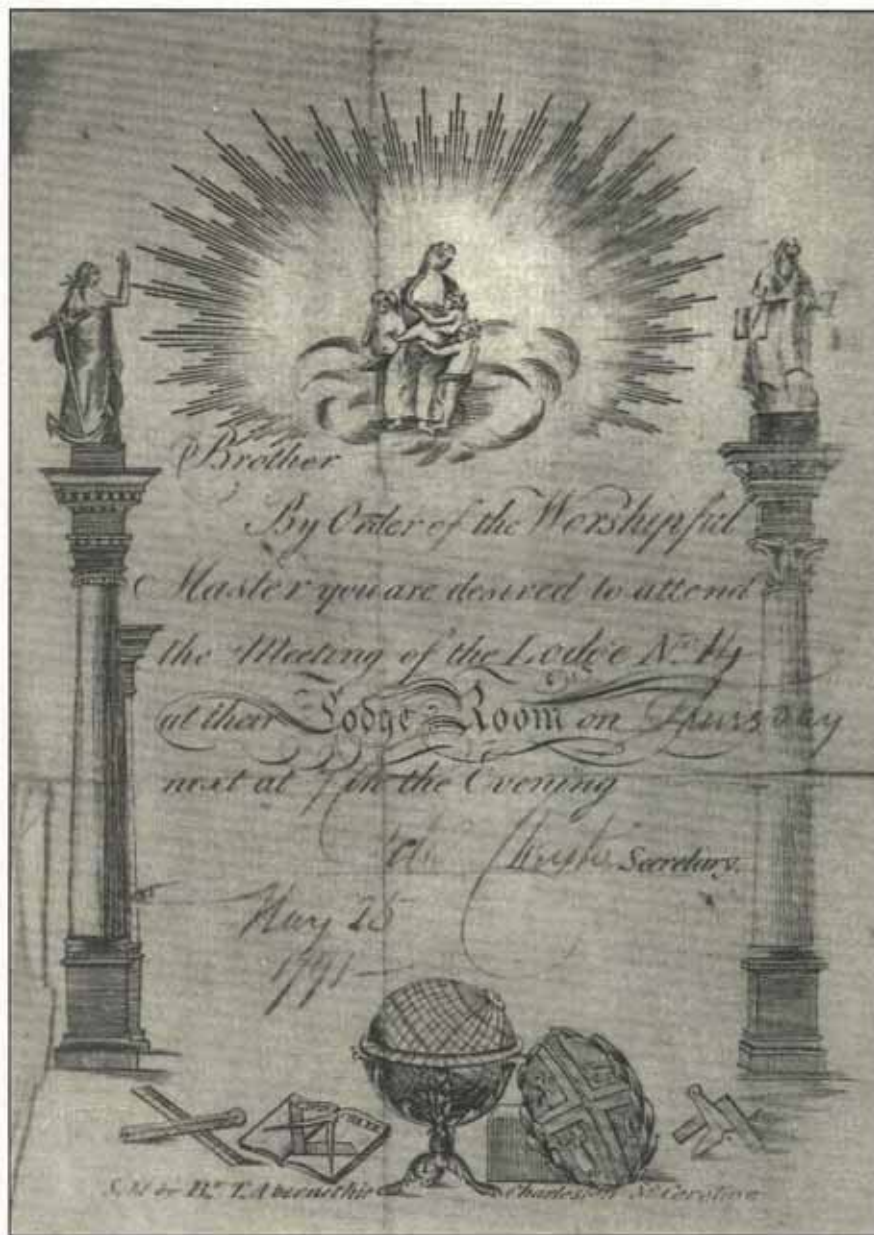 Brother
By Order of the Worshipful
Master you are desired to attend
the Meeting of the Lodge No. 14
at their Lodge Room on Thursday
next at 7 in the Evening
Secretary.
May 25
1791
Sold by Br. T. Abernethie Charleston So. Carolina